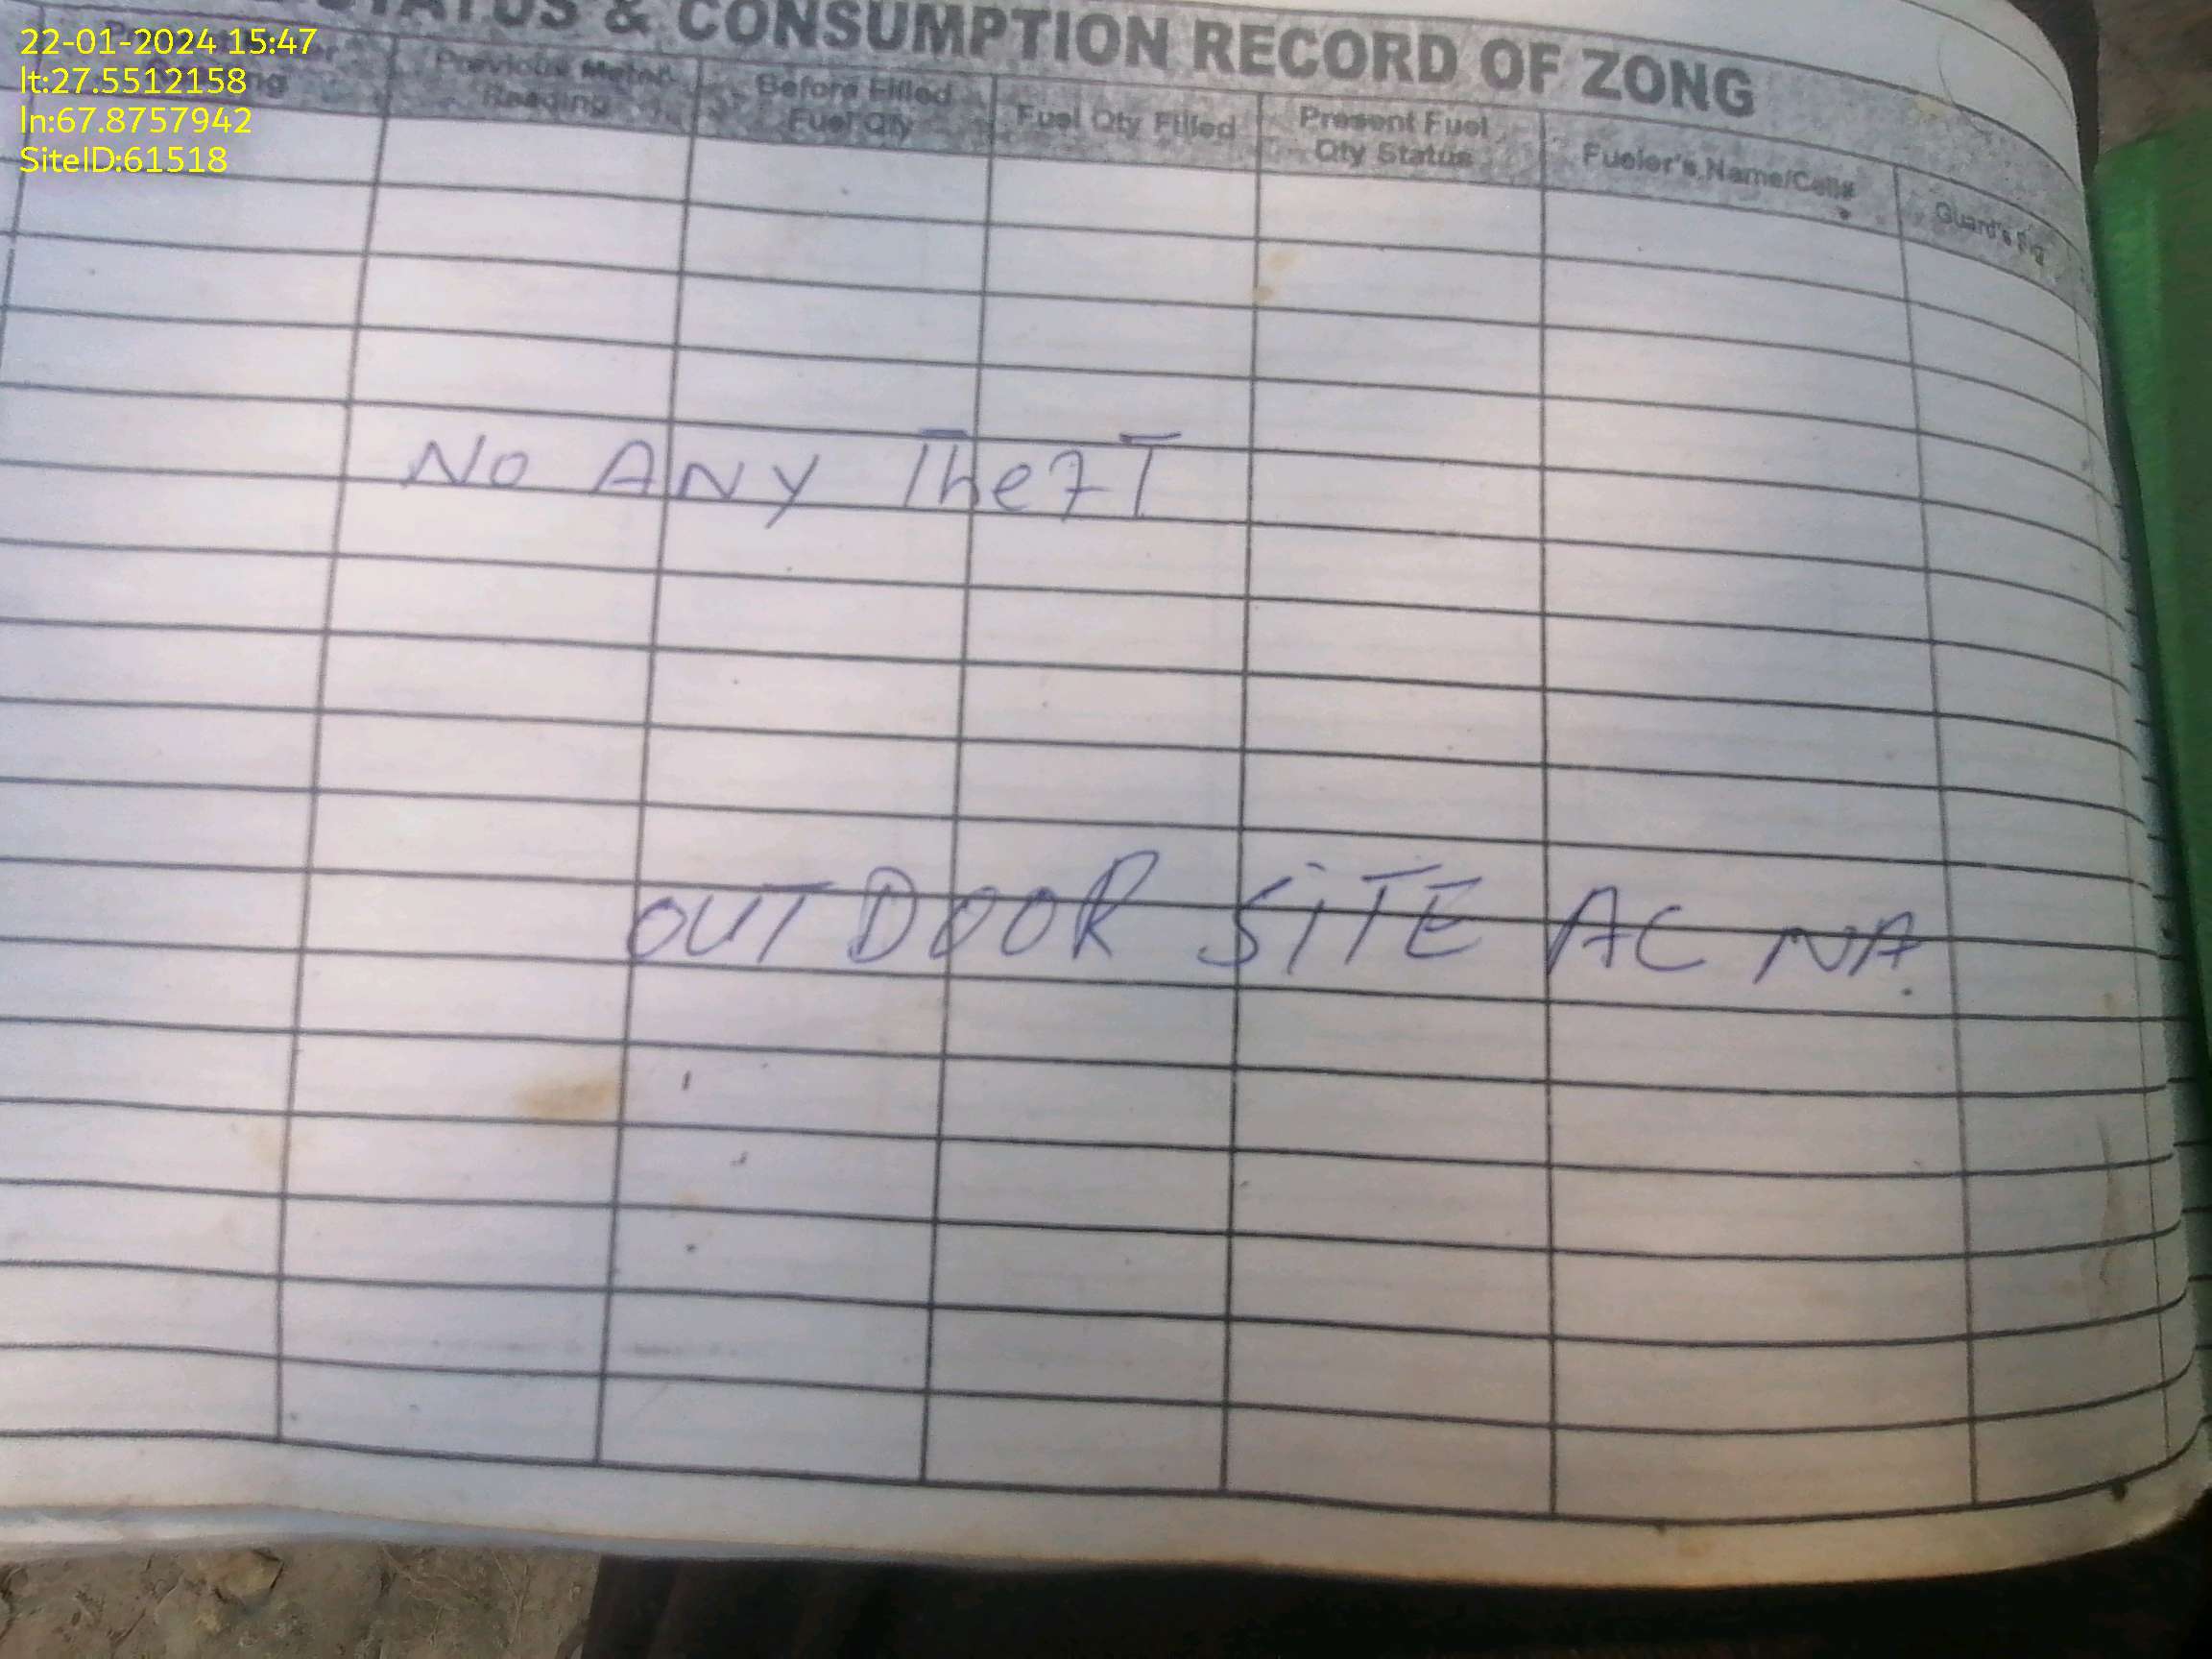 22-01-2024 15:47
lt:27.5512158
ln:67.8757942
SiteID:61518
STATUS & CONSUMPTION RECORD OF ZONG
Previous Meter Reading
Before Filled Fuel Qty
Fuel Qty Filled
Present Fuel Qty Status
Fueler's Name/Cell#
Guard's
NO ANY TheFT
OUTDOOR SiTE AC NA.